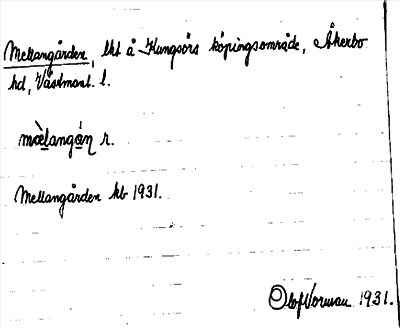 Mellangården, lht å Kungsörs köpingsområde, Åkerbo
hd, Västmanl. l.
mæ̀langɑ́n r.
Mellangården kb 1931.
Olof Vorman 1931.